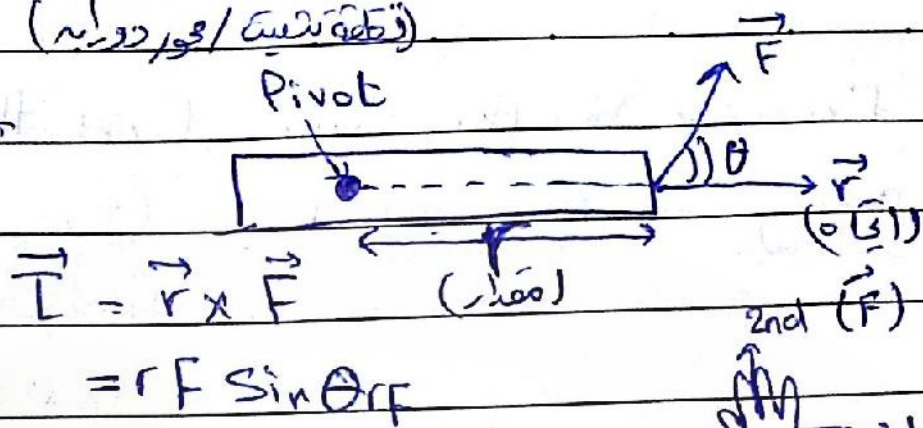 (نقطة تثبيت / محور دورانه)
Pivot
F
θ
r
(اتجاه)
r
(مقدار)
τ = r x F
2nd (F)
= r F Sin θrF